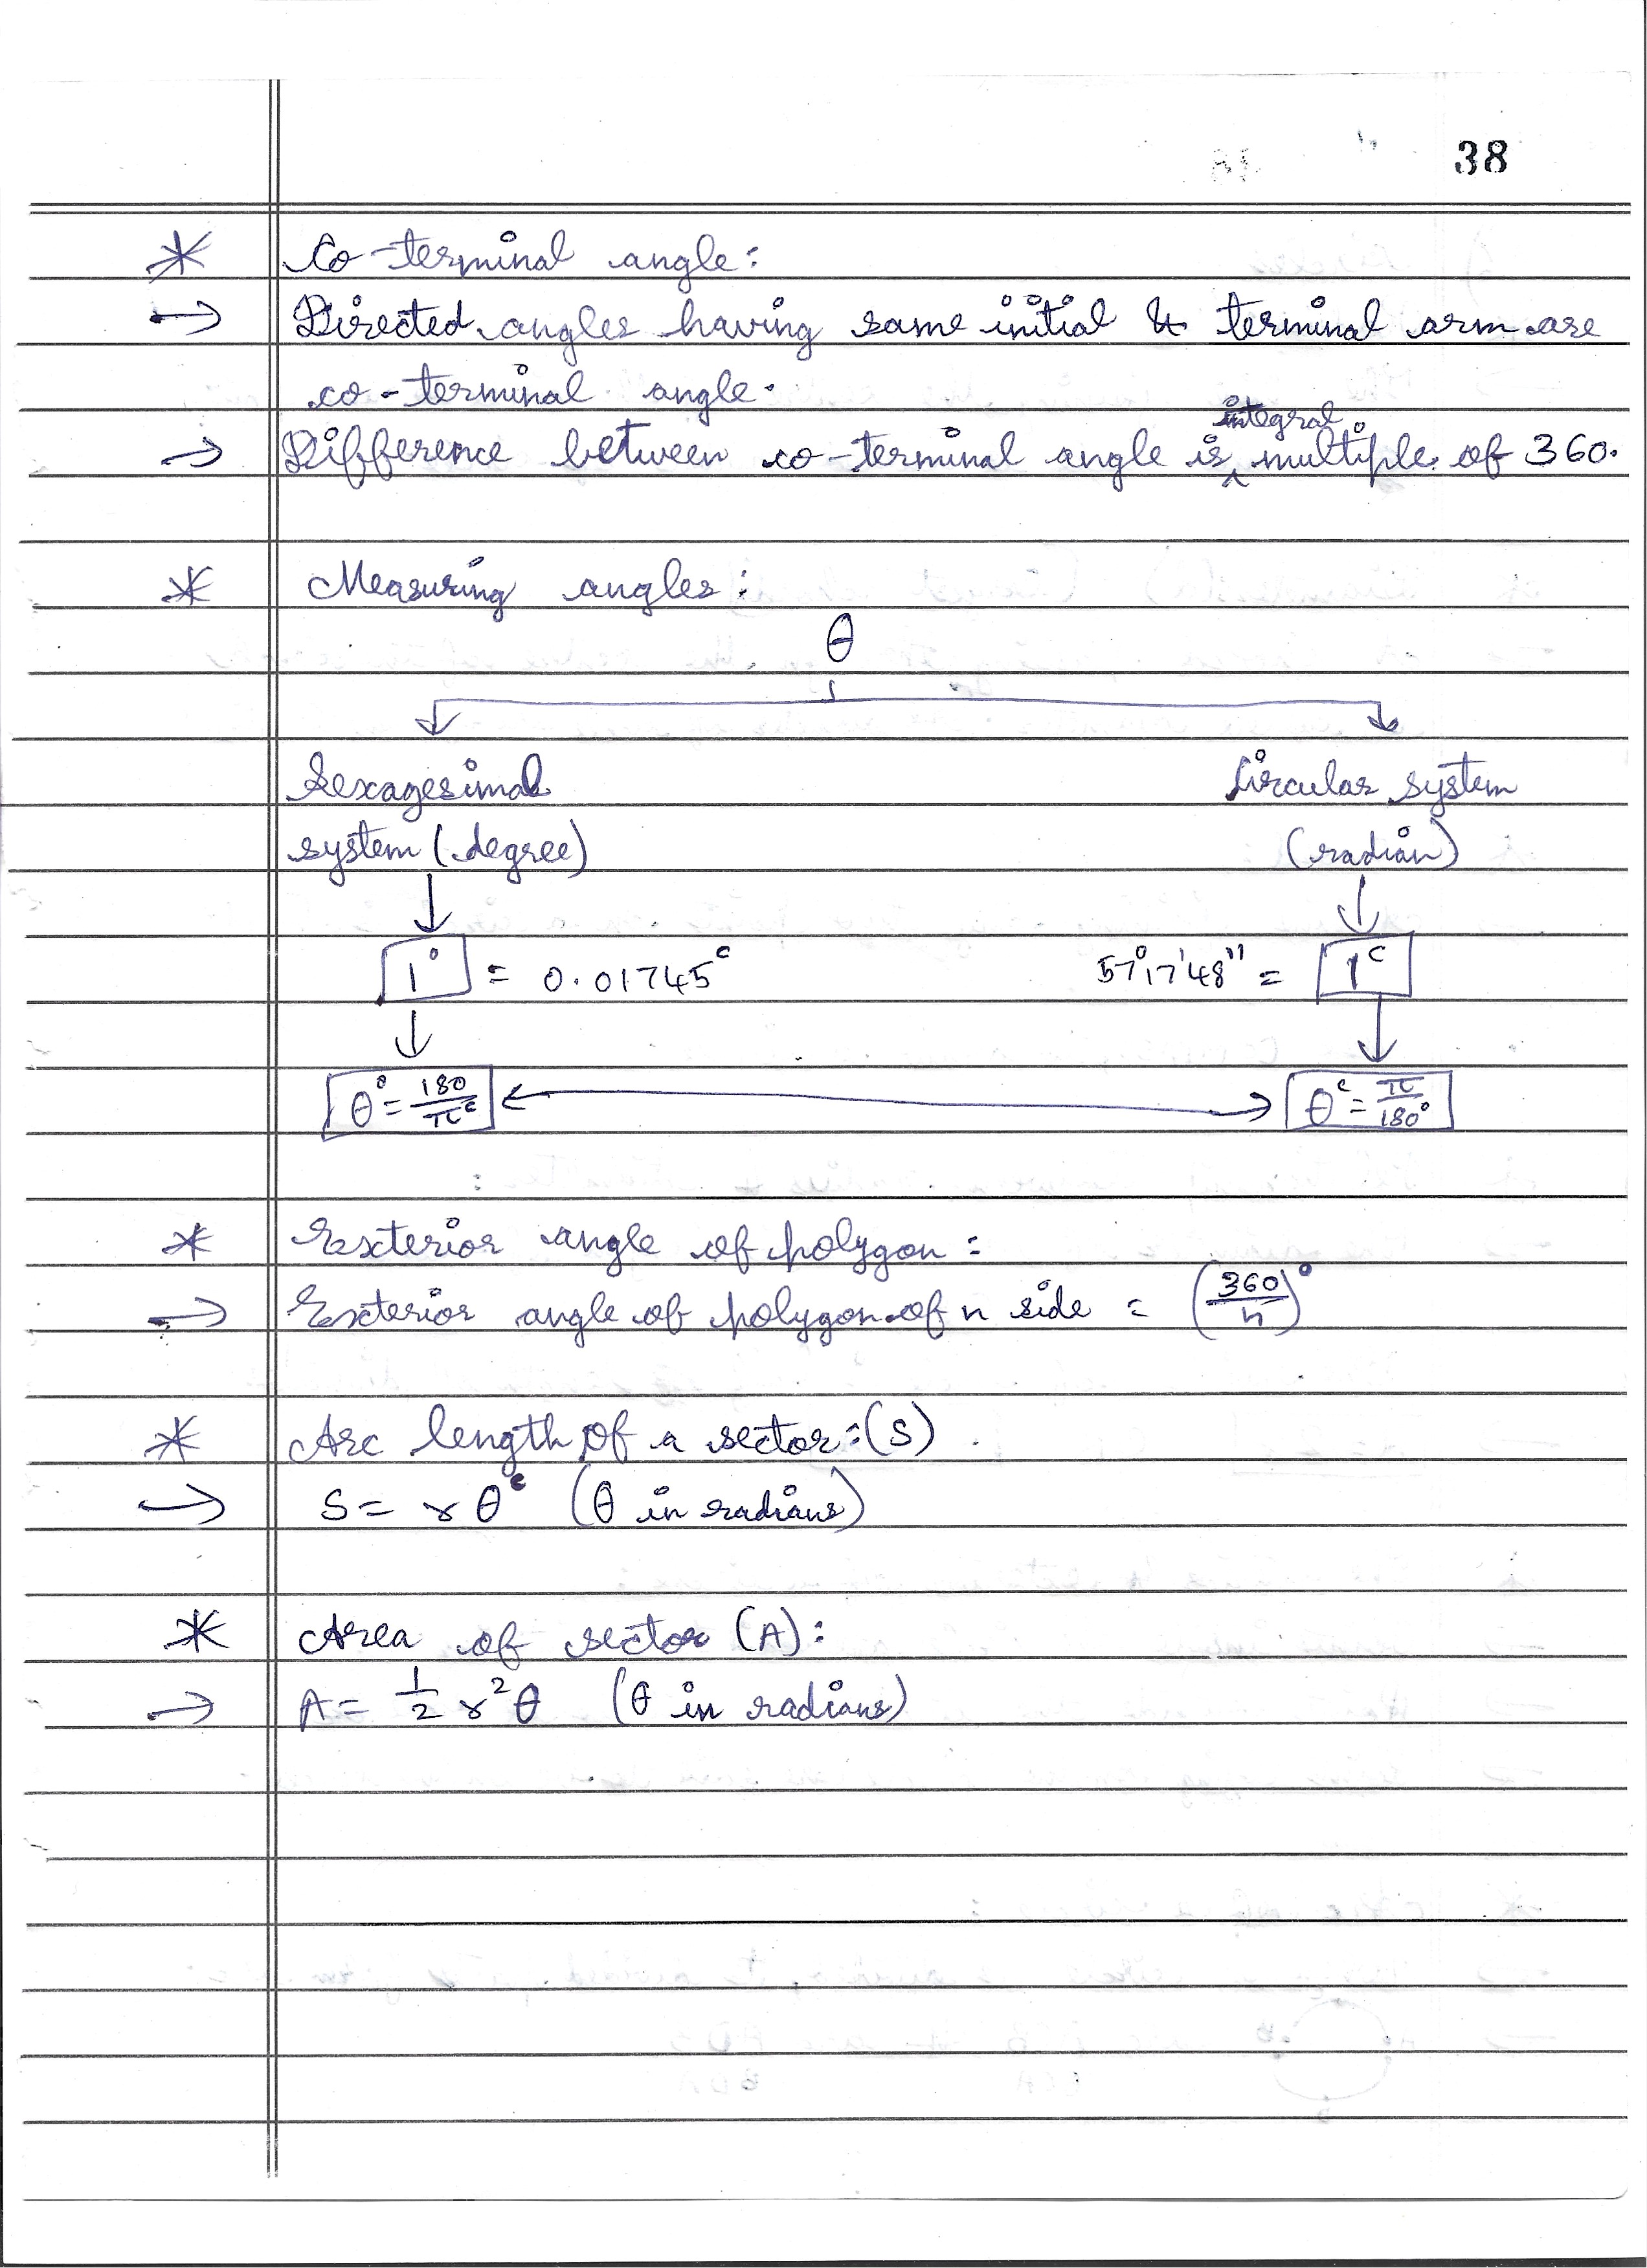 38
* Co-terminal angle:
→ Directed angles having same initial & terminal arm are
co-terminal angle.
integral
→ Difference between co-terminal angle is ^ multiple of 360.
* Measuring angles:
θ
Sexagesimal Circular system
system (degree) (radian)
1° = 0.01745ᶜ 57°17'48" = 1ᶜ
θ° = 180/πᶜ θᶜ = π/180°
* Exterior angle of polygon:
→ Exterior angle of polygon of n side = (360/n)°
* Arc length of a sector: (S)
→ S = rθᶜ (θ in radians)
* Area of sector (A):
→ A = 1/2 r²θ (θ in radians)